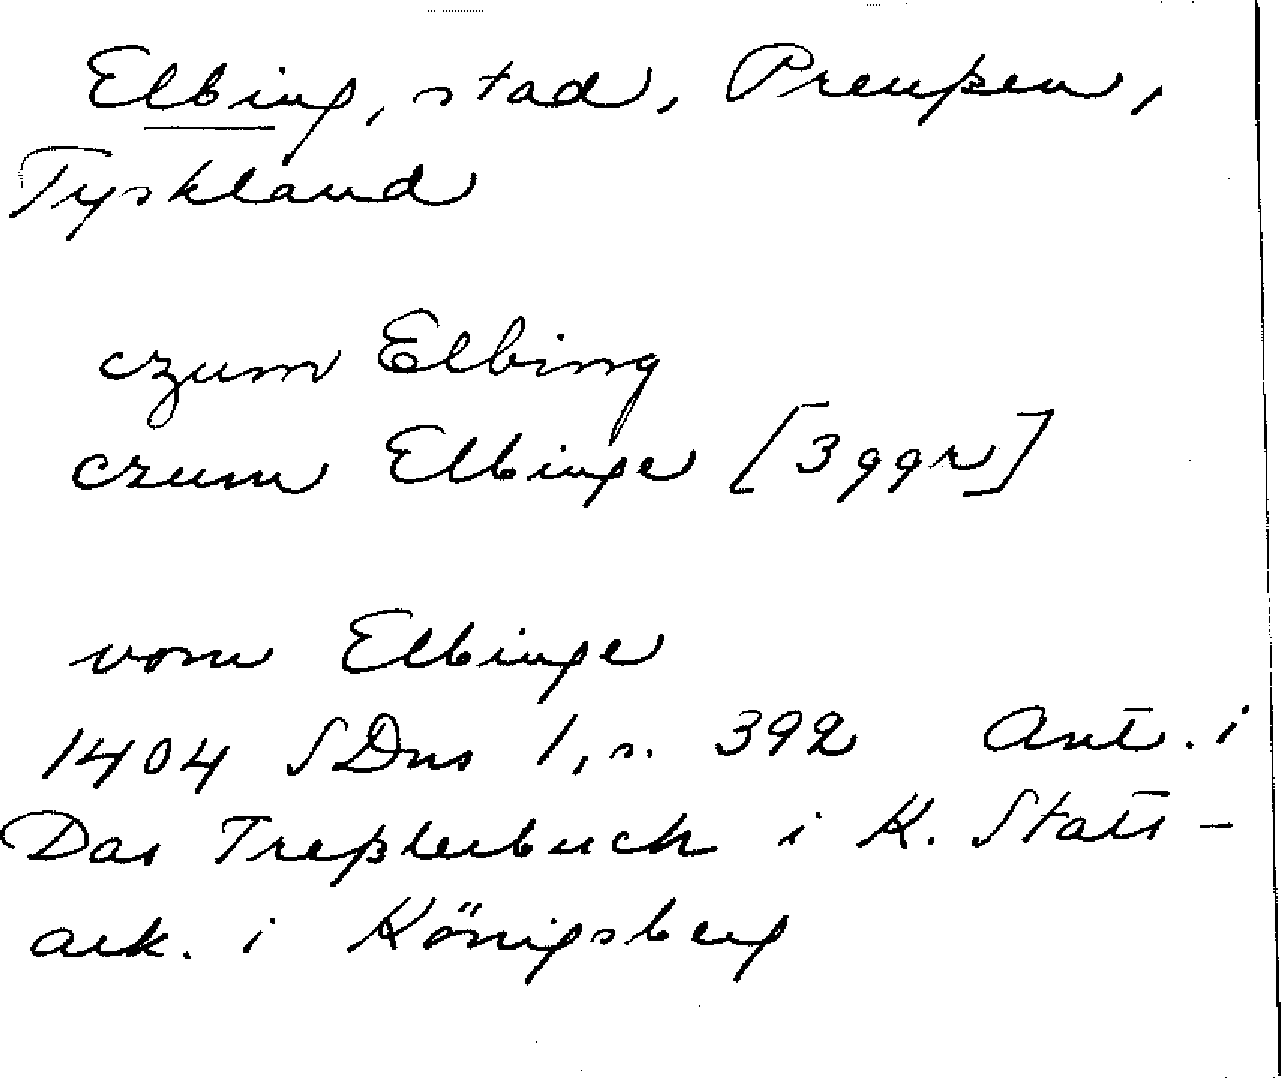 Elbing, stad, Preußen,
Tyskland
czum Elbing
czum Elbinge [3 ggr]
vom Elbinge
1404 SDns 1, s. 392 Ant. i
Das Treßlerbuch i K. Stats-
ark. i Königsberg